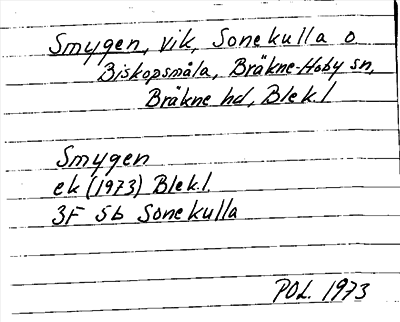 Smygen, vik, Sonekulla o.
Biskopsmåla, Bräkne-Hoby sn,
Bräkne hd, Blek.l
Smygen
ek (1973) Blek.l.
3F 5b Sonekulla
POL. 1973